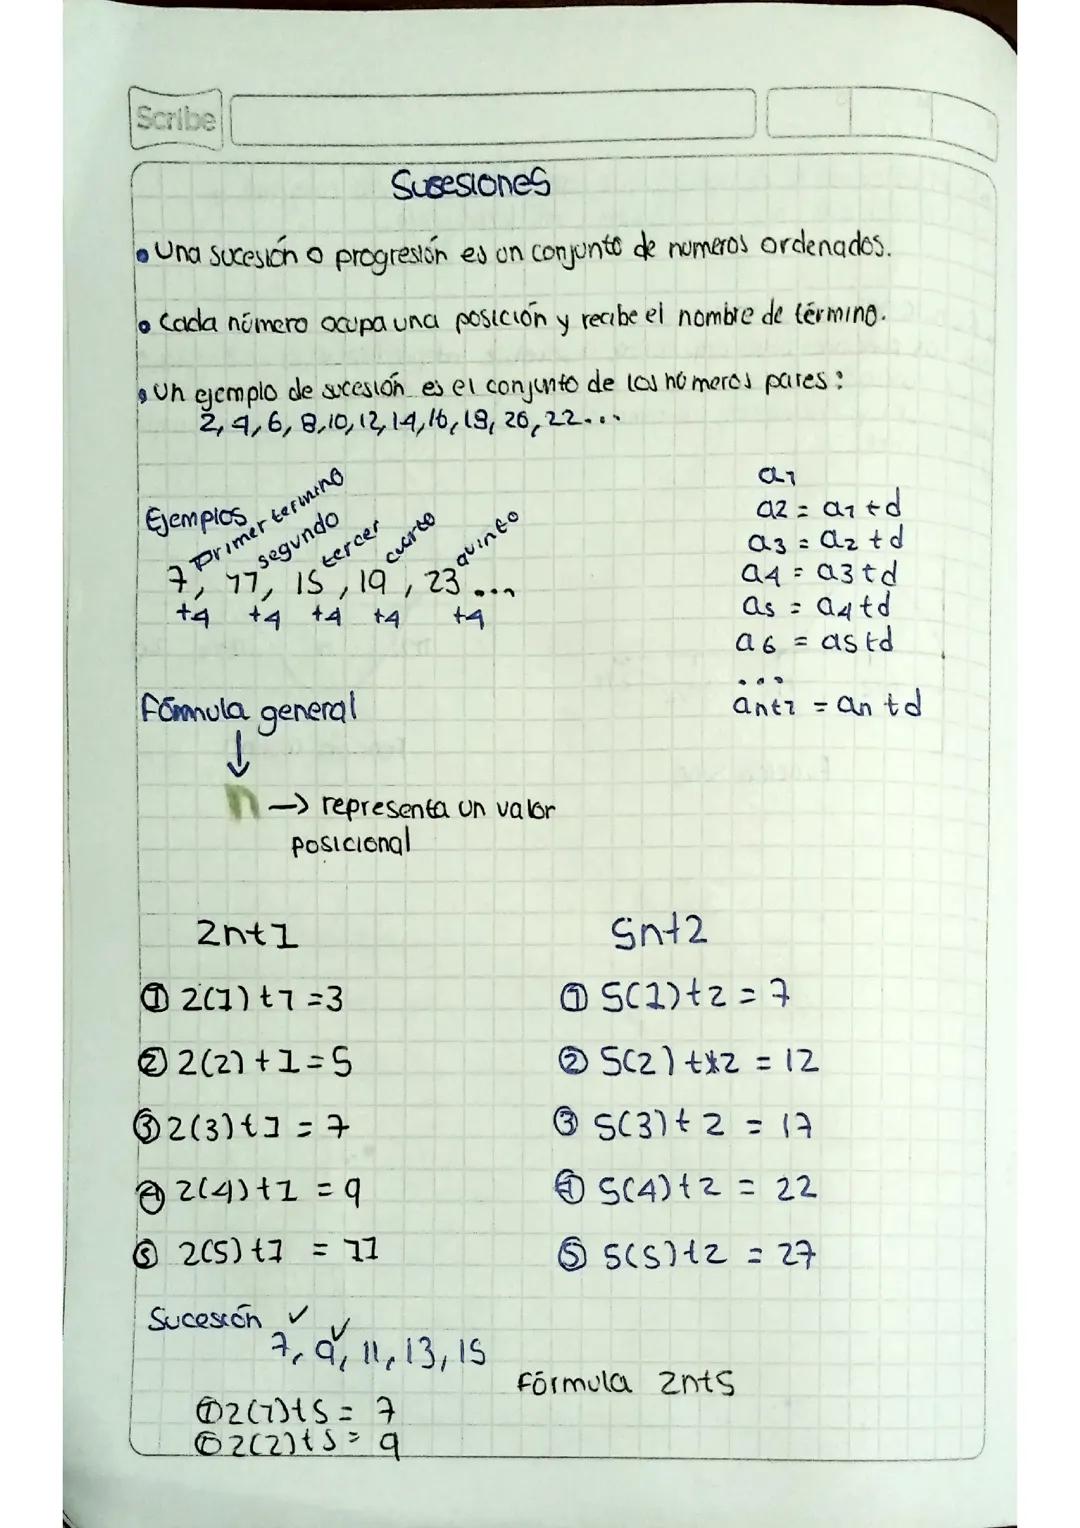 Scribe
Sucesiones
• Una sucesión o progresión es un conjunto de numeros ordenados.
• Cada número ocupa una posición y recibe el nombre de término.
• Un ejemplo de sucesión es el conjunto de los números pares:
2, 4, 6, 8, 10, 12, 14, 16, 18, 20, 22...
Ejemplos
primer termino segundo tercer cuarto quinto
7, 11, 15, 19, 23...
+4 +4 +4 +4 +4
a1
a2 = a1 + d
a3 = a2 + d
a4 = a3 + d
a5 = a4 + d
a6 = a5 + d
...
an+1 = an + d
Fórmula general
↓
n → representa un valor
posicional
2n+1
① 2(1)+1=3
② 2(2)+1=5
③ 2(3)+1=7
④ 2(4)+1=9
⑤ 2(5)+1=11
5n+2
① 5(1)+2=7
② 5(2)+2=12
③ 5(3)+2=17
④ 5(4)+2=22
⑤ 5(5)+2=27
Sucesión ✓ ✓
7, 9, 11, 13, 15
Fórmula 2n+5
① 2(1)+5=7
② 2(2)+5=9